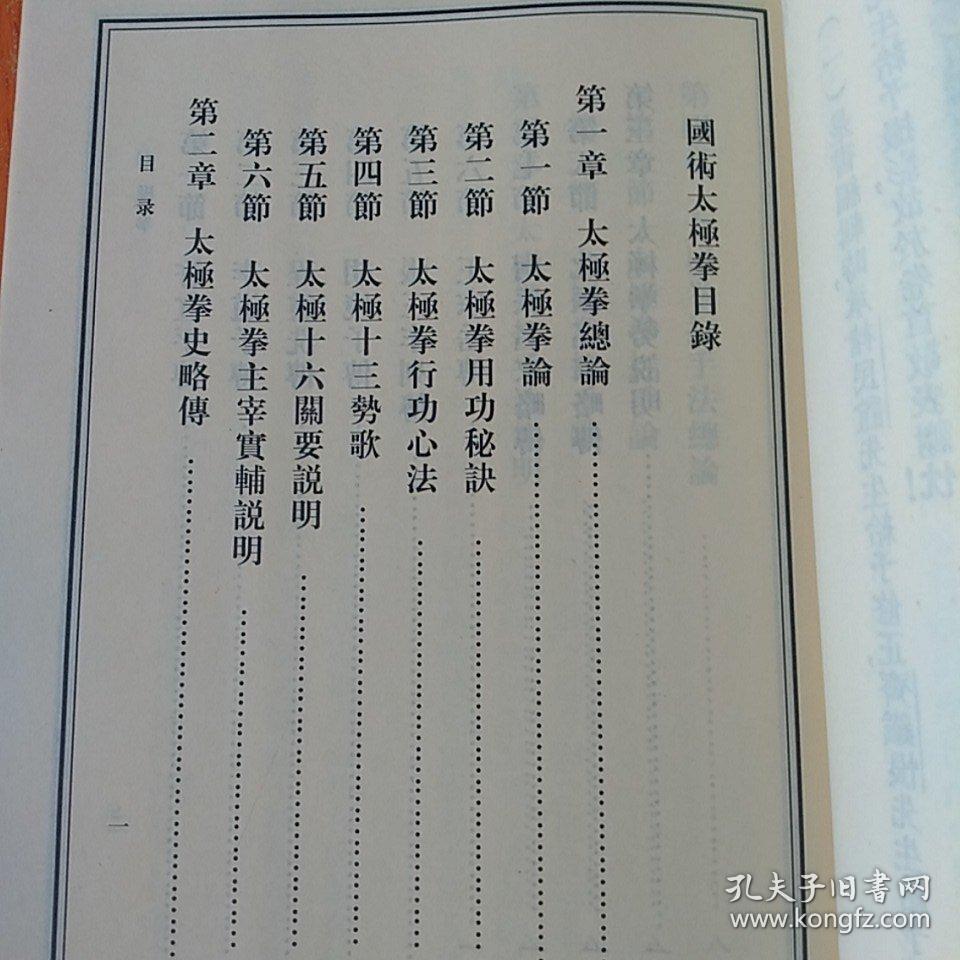 國術太極拳目錄
第一章 太極拳總論
第一節 太極拳論
第二節 太極拳用功秘訣
第三節 太極拳行功心法
第四節 太極十三勢歌
第五節 太極十六關要説明
第六節 太極拳主宰實輔説明
第二章 太極拳史略傳
目录
一
孔夫子旧书网
www.kongfz.com